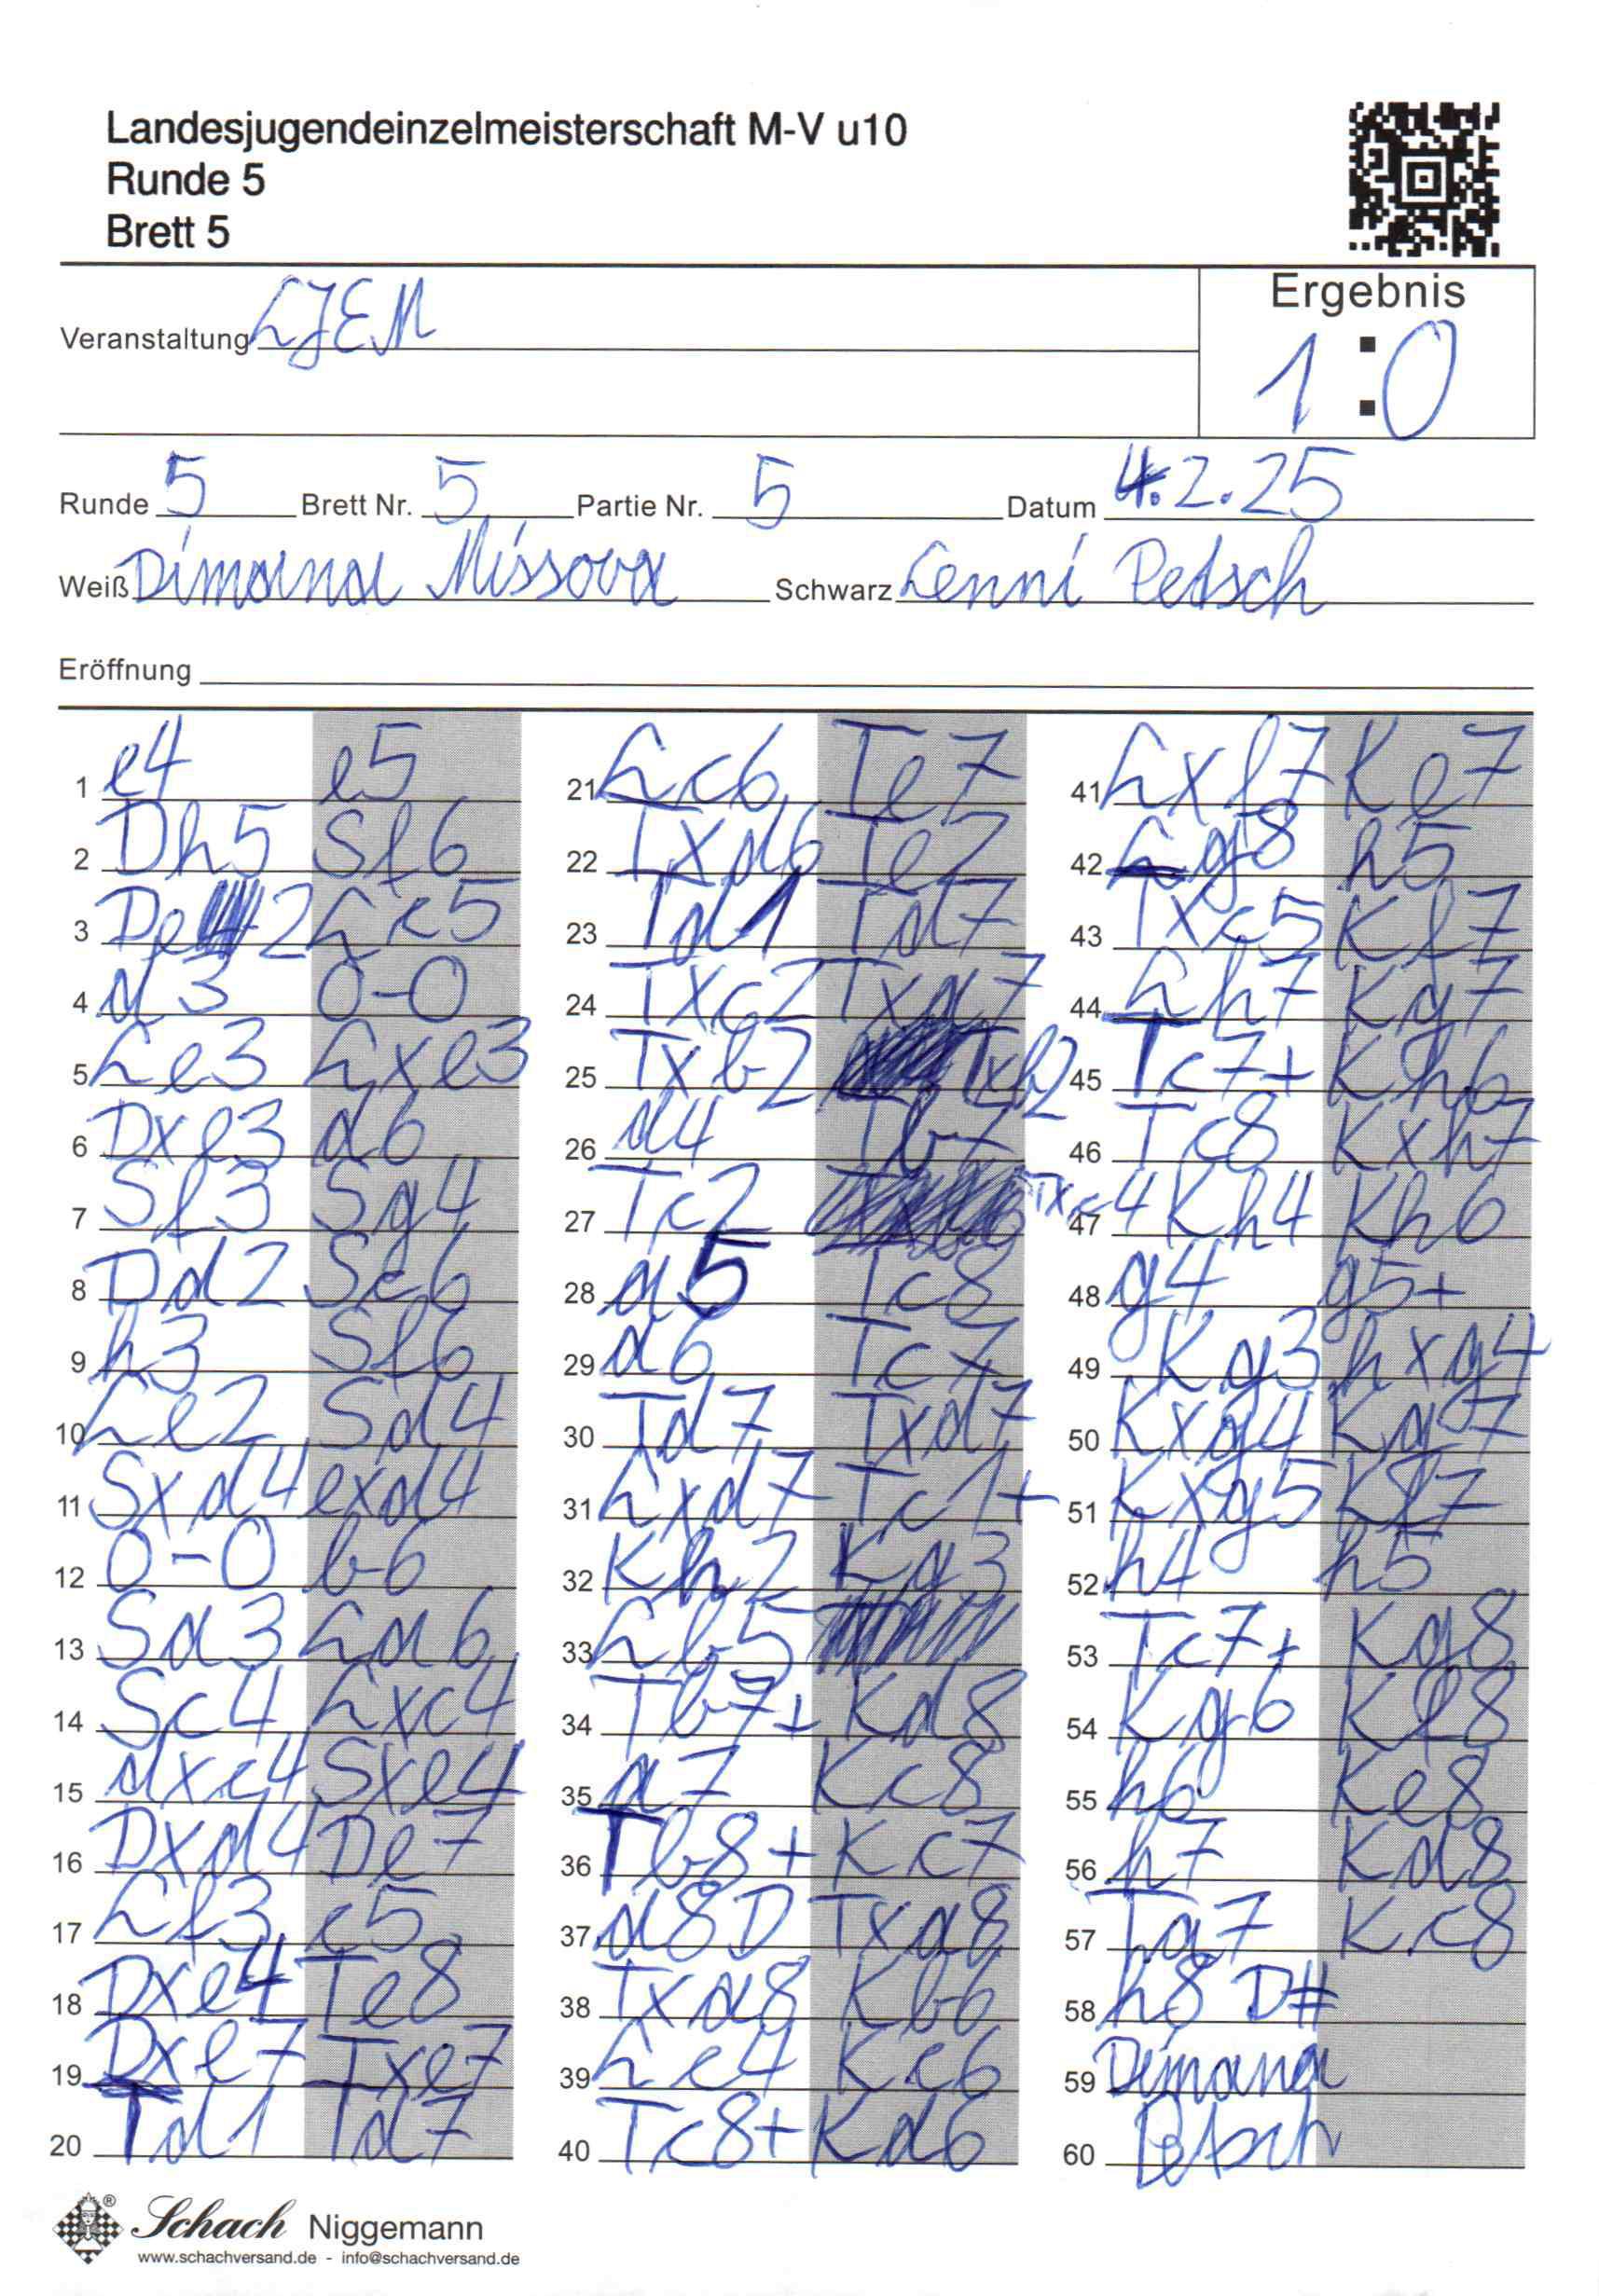 Landesjugendeinzelmeisterschaft M-V u10
Runde 5
Brett 5
Veranstaltung LJEM
Ergebnis
1:0
Runde 5 Brett Nr. 5 Partie Nr. 5 Datum 4.2.25
Weiß Dimana Missova Schwarz Lenni Petsch
Eröffnung
1 e4 e5
2 Dh5 Sf6
3 De2 Lc5
4 d3 0-0
5 Le3 Lxe3
6 Dxe3 d6
7 Sf3 Sg4
8 Dd2 Sc6
9 h3 Sf6
10 Le2 Sd4
11 Sxd4 exd4
12 0-0 b6
13 Sa3 La6
14 Sc4 Lxc4
15 dxc4 Sxe4
16 Dxd4 De7
17 Lf3 c5
18 Dxe4 Te8
19 Dxe7 Txe7
20 Td1 Td7
21 Lc6 Te7
22 Txd6 Te2
23 Td1 Td7
24 Txc2 Txa7
25 Txb2 Txb2
26 a4 Tb7
27 Tc2 Txc4
28 a5 Tc8
29 a6 Tc7
30 Td7 Txd7
31 Lxd7 Tc1+
32 Kh2 Kg3
33 Lb5
34 Tb7+ Kd8
35 a7 Kc8
36 Tb8+ Kc7
37 a8D Txa8
38 Txa8 Kb6
39 Le4 Kc6
40 Tc8+ Kd6
41 Lxf7 Ke7
42 Lg8 h5
43 Txc5 Kf7
44 Lh7 Kg7
45 Tc7+ Kh6
46 Tc8 Kxh7
47 Kh4 Kh6
48 g4 g5+
49 Kg3 hxg4
50 Kxg4 Kg7
51 Kxg5 Kf7
52 h4 h5
53 Tc7+ Kg8
54 Kg6 Kf8
55 h6 Ke8
56 h7 Kd8
57 Ta7 Kc8
58 h8 D#
59 Dimana
60 Petsch
Schach Niggemann
www.schachversand.de - info@schachversand.de